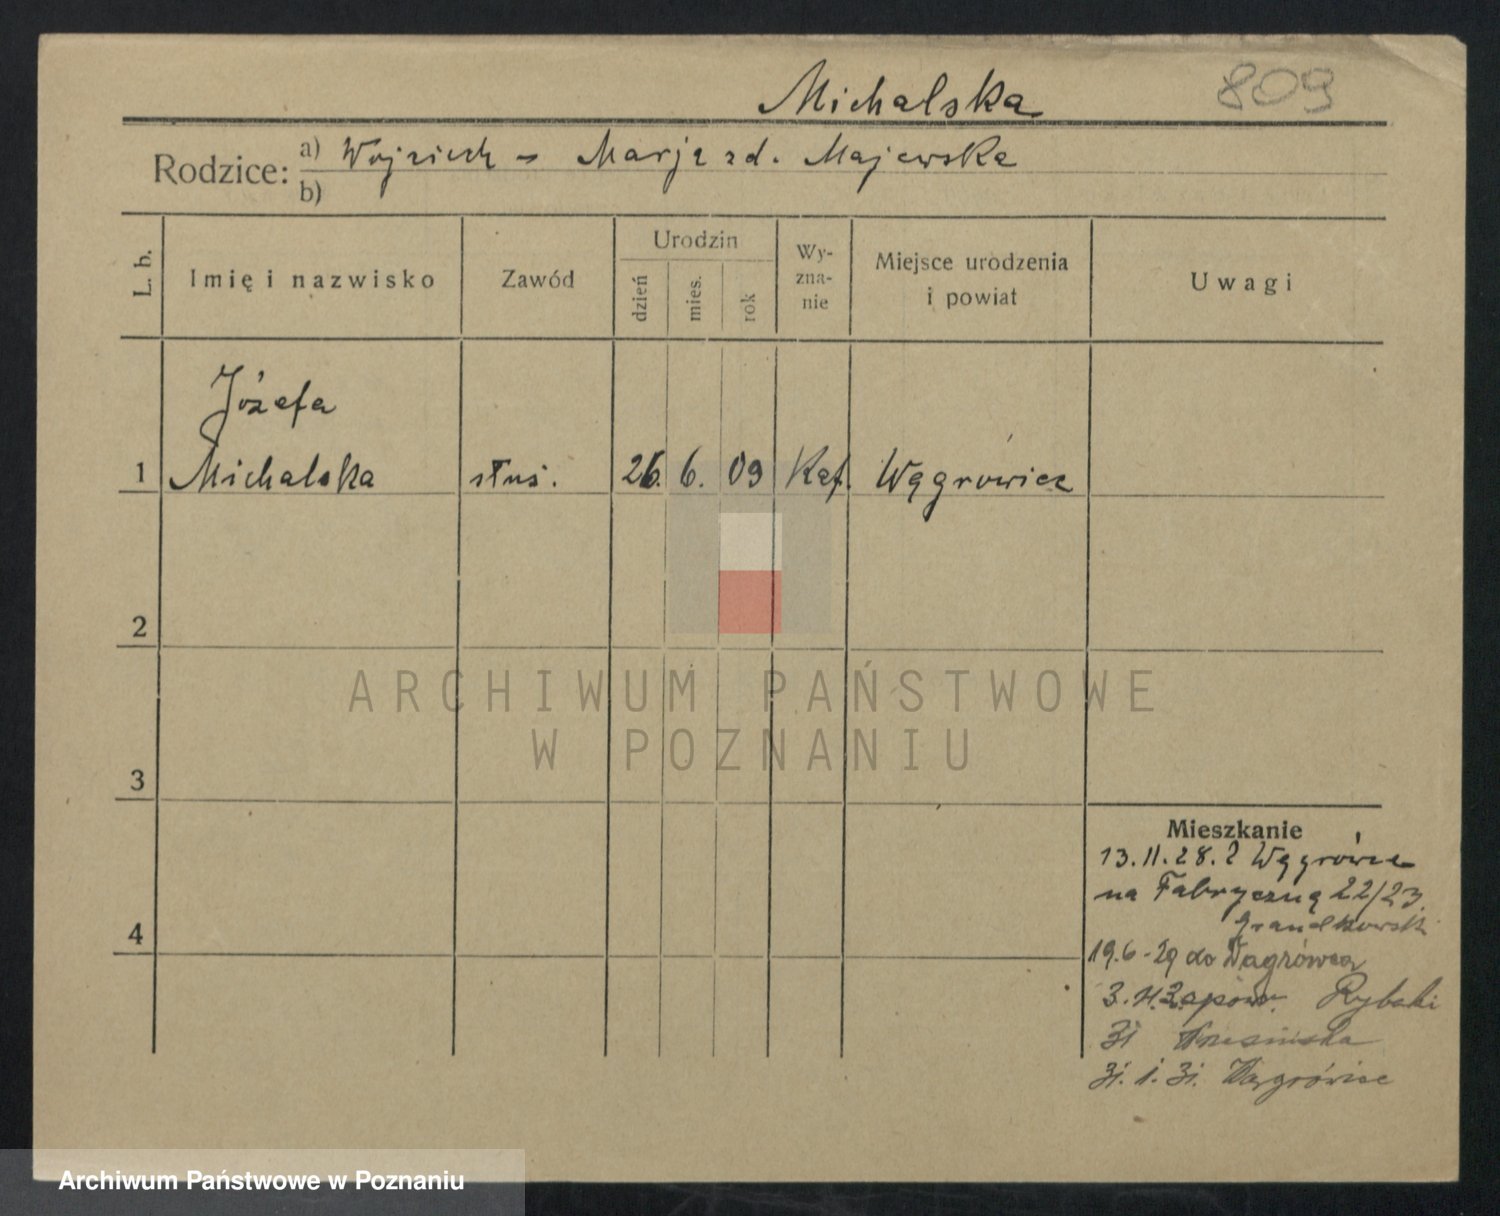 Michalska 809
Rodzice: a) Wojciech - Marja zd. Majewska
b)
L. b. Imię i nazwisko Zawód Urodzin dzień mies. rok Wy-zna-nie Miejsce urodzenia i powiat Uwagi
Józefa
1 Michalska służ. 26. 6. 09 Kat. Wągrowiec
2
ARCHIWUM PAŃSTWOWE
W POZNANIU
3
Mieszkanie
13.11.28. z Wągrówca
na Fabryczną 22/23.
4
19.6-29 do Wągrówca
Rybaki
31
31. 1. 31. Wągrówiec
Archiwum Państwowe w Poznaniu